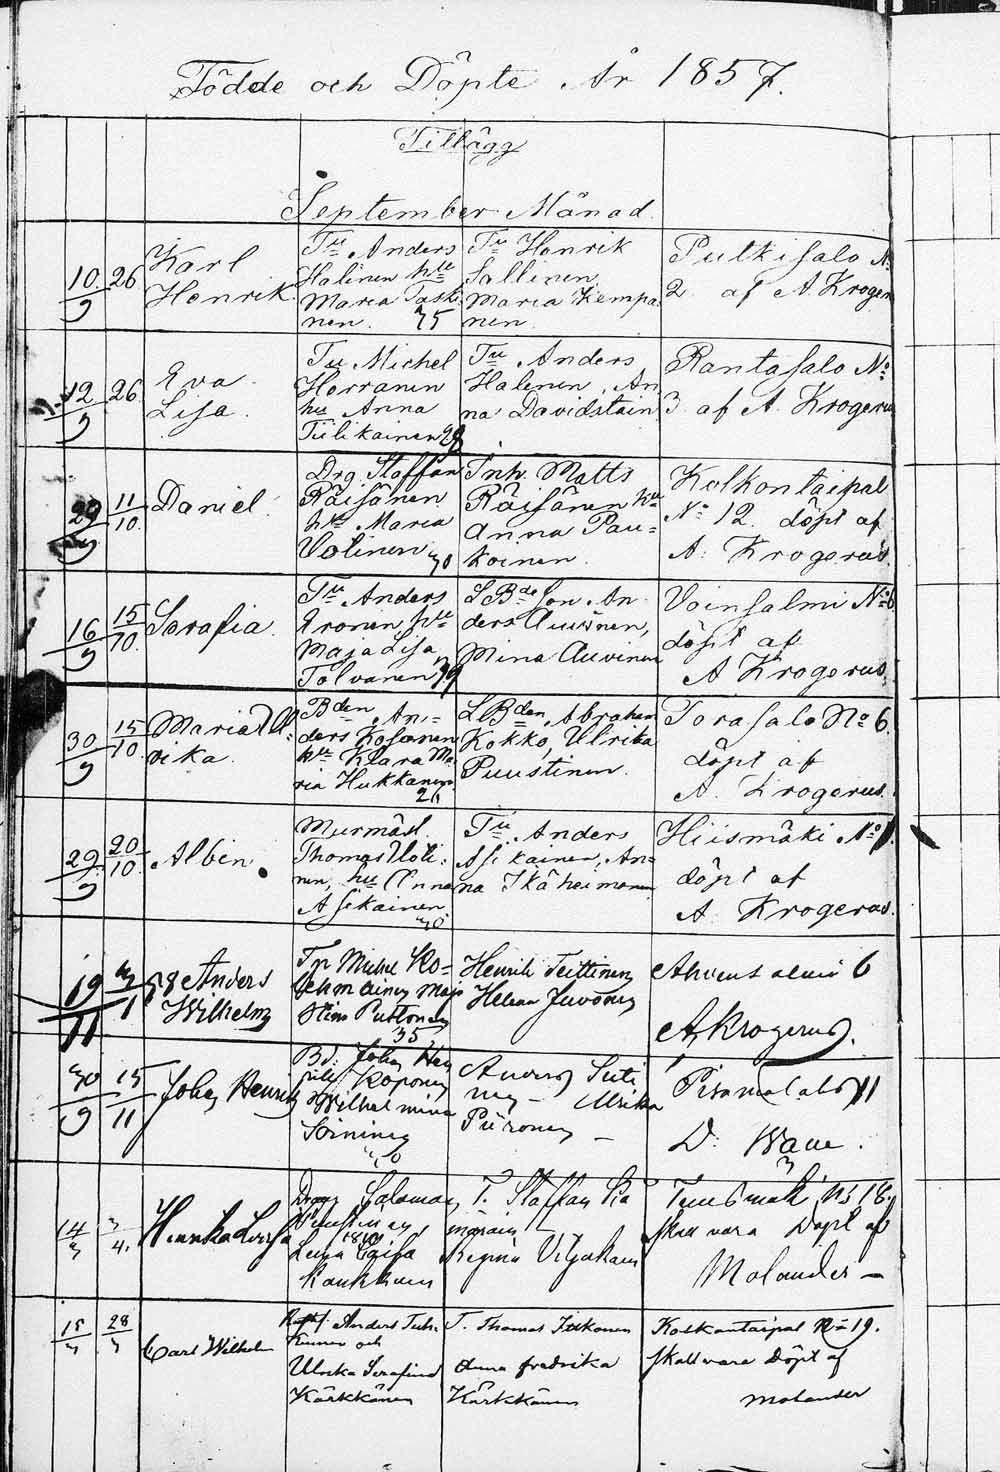 Födde och Döpte År 1857.
Tillägg
September Månad.
10/9 26 Karl Henrik
Tu Anders
Halinen hu
Maria Paski
nen. 25
Tu Henrik
Sallinen,
Maria Kempa
nen.
Pulkisalo No
2 af A. Kroger
12/9 26 Eva
Lisa.
Tu Michel
Horranen
hu Anna
Tiilikainen 28
Tu Anders
Halenen, An
na Davidstain
Rantasalo No
3 af A. Krogerus
29/9 11/10 Daniel
Drg Staffan
Räisänen
hu Maria
Volinen 30
Inh. Matts
Räisänen hu
Anna Pau=
konen.
Kolkontaipal
No 12. döpt af
A. Krogerus.
16/9 15/10 Serafia.
Tu Anders
Eronen hu
Maja Lisa
Tolvanen 39
LBde Son An
ders Auvinen,
Mina Auvinen
Voinsalmi No 6
döpt af
A Krogerus.
30/9 15/10 Maria Ul
rika.
Bden An=
ders Kosonen
hu Klara Ma
ria Hukkanen
LBden Abraham
Kokko, Ulrika
Puustinen.
Torasalo No 6.
döpt af
A. Krogerus.
29/9 20/10 Albin
Murmäst.
Thomas Holi=
nen, hu Anna
Asikainen
30
Tu Anders
Asikainen, An=
na Ikäheimonen
Hiismäki No 1.
döpt af
A. Krogerus.
19/11 58 Anders
Wilhelm
35
Henrik Teittinen
Helena Juvonen
6
A Krogerus.
30/9 15/11 Johan Henrik
Koponen
Wilhelmina
Ulrika
Piironen
11
D. Wäne.
14 Henrika Lovisa
Drag Salomon
T. Staffan
Regina Viljakain
No 18.
skall vara Döpt af
Molander
15 28 Carl Wilhelm
Anders Tuhkunen och
Ulrika Serafina
Kärkkänen
T. Thomas Itkonen
Anna Fredrika
Kärkkänen
Kolkontaipal No 19.
skall vara Döpt af
Molander